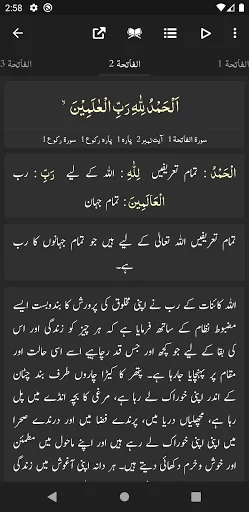 2:58
الفاتحة 1
الفاتحة 2
الفاتحة 3
اَلْحَمْدُ لِلّٰهِ رَبِّ الْعٰلَمِيْنَ ۙ
سورۃ الفاتحة 1 آیت نمبر 2 پارہ 1 پارہ رکوع 1 سورۃ رکوع 1
اَلْحَمْدُ : تمام تعریفیں لِلّٰهِ : اللہ کے لیے رَبِّ : رب
الْعَالَمِينَ : تمام جہان
تمام تعریفیں اللہ تعالی کے لیے ہیں جو تمام جہانوں کا رب
ہے۔
اللہ کائنات کے رب نے اپنی مخلوق کی پرورش کا بندوبست ایسے
مضبوط نظام کے ساتھ فرمایا ہے کہ ہر چیز کو زندگی اور اس
کی بقا کے لیے جو کچھ اور جس قدر چاہیے اسے اسی حالت اور
مقام پر پہنچایا جارہا ہے۔ پتھر کا کیڑا چاروں طرف بند چٹان
کے اندر اپنی خوراک لے رہا ہے، مرغی کا بچہ انڈے میں پل
رہا ہے، مچھلیاں دریا میں، پرندے فضا میں اور درندے صحرا
میں اپنی اپنی خوراک لے رہے ہیں اور اپنے ماحول میں مطمئن
اور خوش وخرم دکھائی دیتے ہیں۔ ہر دانہ اپنی آغوش میں زندگی